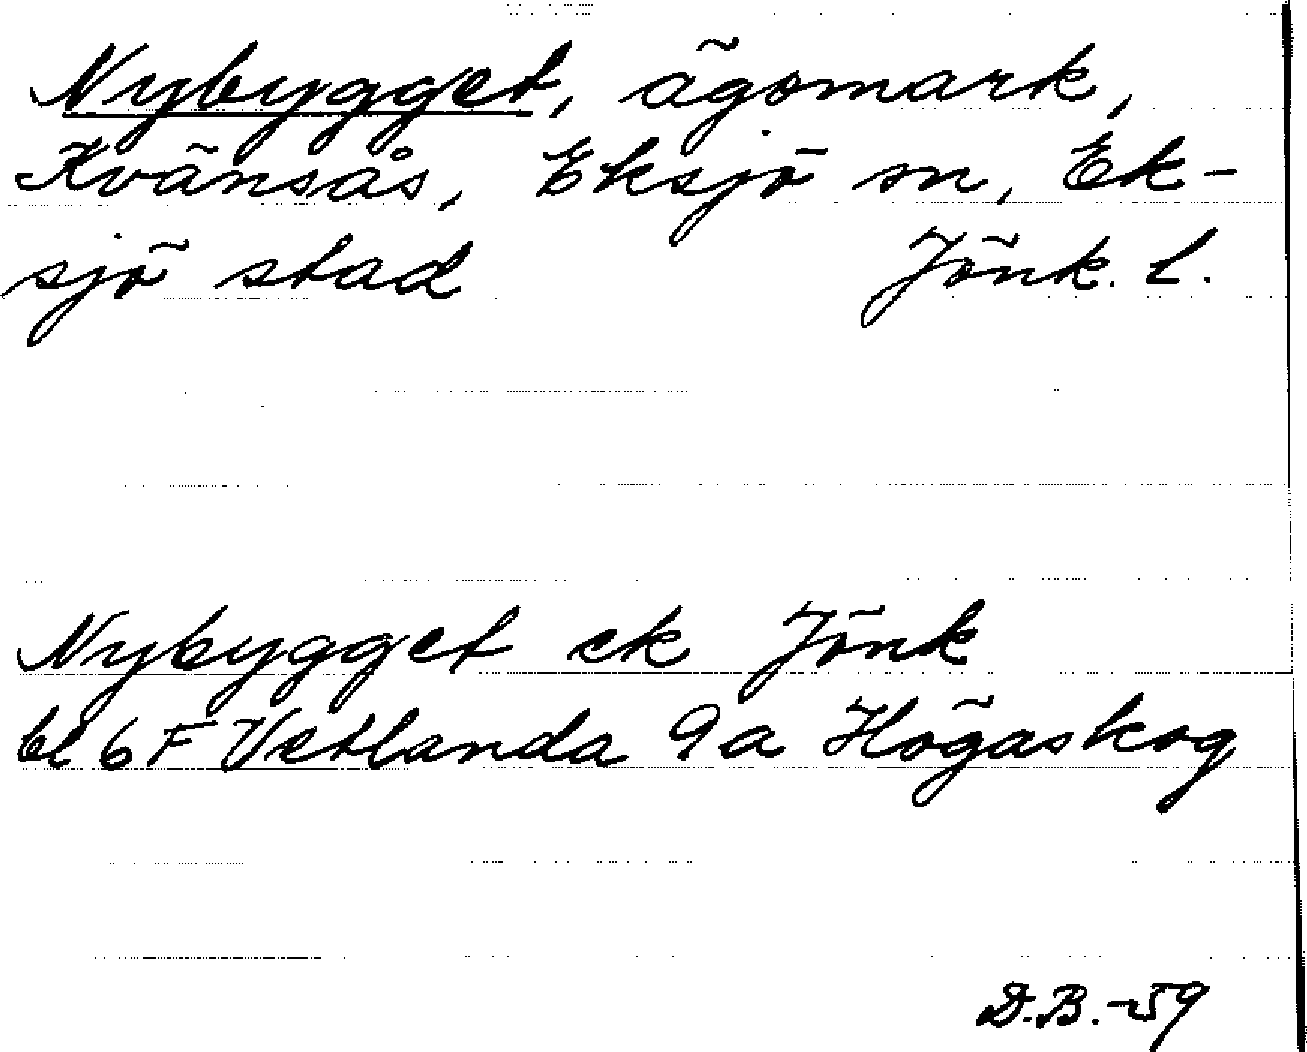 Nybygget, ägomark,
Kvänsås, Eksjö sn, Ek-
sjö stad Jönk. l.
Nybygget ek Jönk
bl 6 F Vetlanda 9a Högaskog
D.B.-59